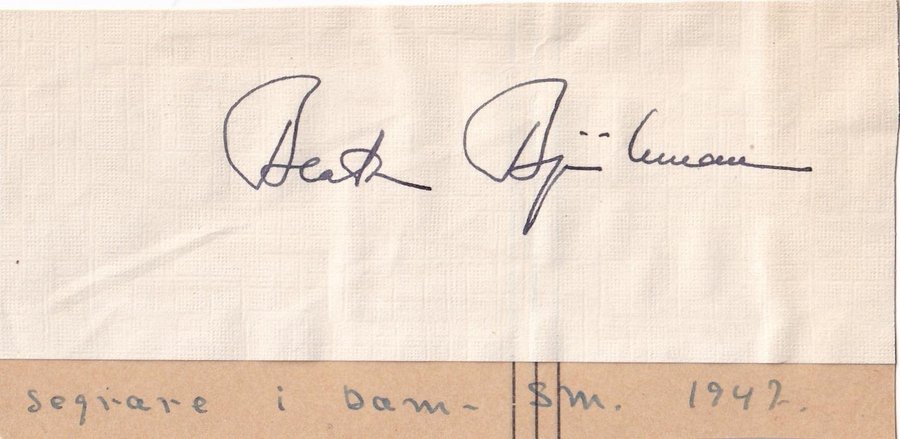 Beath Björkman
segrare i Dam- SM. 1942.